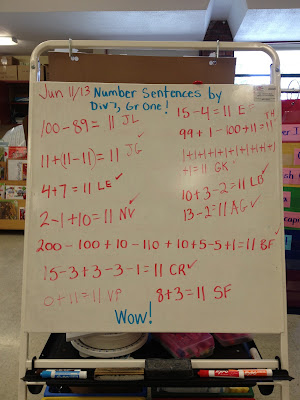 Jun 11/13 Number Sentences by
Div 7, Gr One!
100-89=11 JL
11+(11-11)=11 JG ✓
4+7=11 LE ✓
2-1+10=11 NV ✓
15-4=11 E
99+1-100+11=11 JH
1+1+1+1+1+1+1+1+1+1
+1=11 GK ✓
10+3-2=11 LD ✓
13-2=11 AG ✓
200-100+10-110+10+5-5+1=11 BF ✓
15-3+3-3-1=11 CR ✓
0+11=11 VP
8+3=11 SF
Wow!
EXPO
EXPO